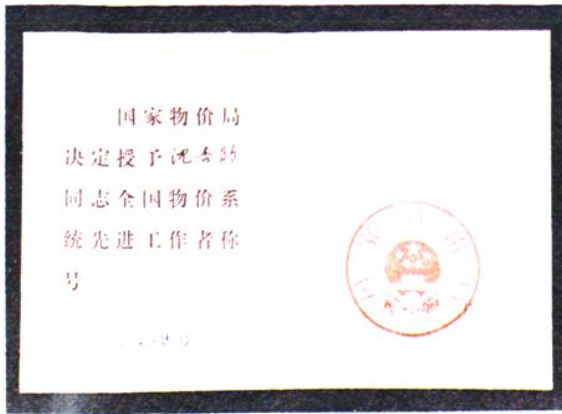 国家物价局
决定授予
同志全国物价系
统先进工作者称
号